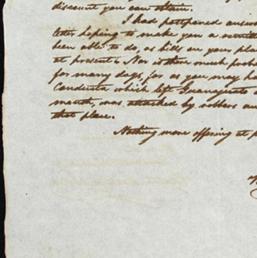 discount you can obtain.
I had postponed answe
letter hoping to make you a remitt
been able to do, as bills on your plac
at present. Nor is there much proba
for many days, for as you may ha
Conducta which left Guanajuato
month, was attacked by robbers an
that place.
Nothing more offering at p